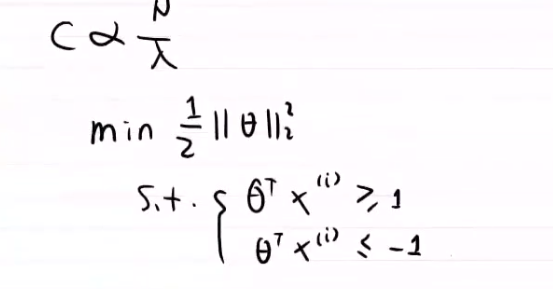 C ∝ N/λ
min 1/2 ||θ||₂²
s.t. { θᵀ x⁽ⁱ⁾ ≥ 1
θᵀ x⁽ⁱ⁾ ≤ -1